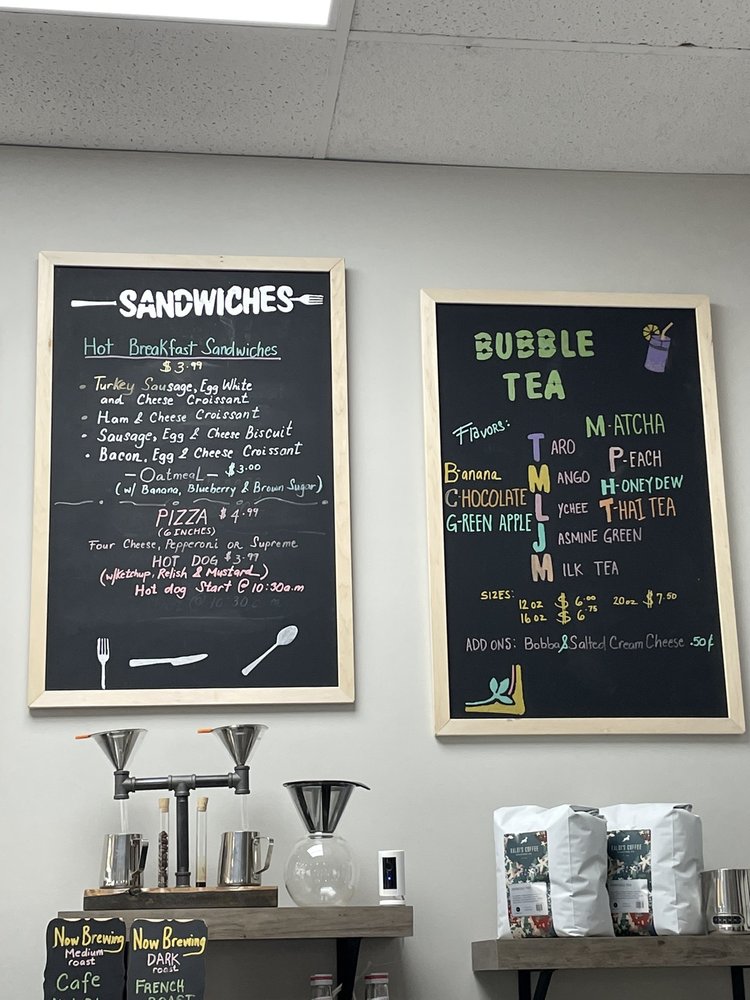 SANDWICHES
Hot Breakfast Sandwiches
$3.99
Turkey Sausage, Egg White
and Cheese Croissant
Ham & Cheese Croissant
Sausage, Egg & Cheese Biscuit
Bacon, Egg & Cheese Croissant
-Oatmeal- $3.00
(w/ Banana, Blueberry & Brown Sugar)
PIZZA $4.99
(6 INCHES)
Four Cheese, Pepperoni or Supreme
HOT DOG $3.99
(w/Ketchup, Relish & Mustard)
Hot dog Start @ 10:30a.m
BUBBLE
TEA
Flavors:
M-ATCHA
TARO
P-EACH
Banana
MANGO
H-ONEYDEW
C-HOCOLATE
LYCHEE
T-HAI TEA
G-REEN APPLE
JASMINE GREEN
MILK TEA
SIZES:
12 oz $6.00 20oz $7.50
16 oz $6.75
ADD ONS: Bobba & Salted Cream Cheese .50¢
KALDI'S COFFEE
KALDI'S COFFEE
Now Brewing
Medium
roast
Cafe
Now Brewing
DARK
roast
FRENCH
ROAST